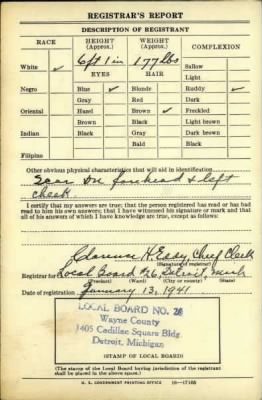 REGISTRAR'S REPORT
DESCRIPTION OF REGISTRANT
RACE HEIGHT (Approx.) WEIGHT (Approx.) COMPLEXION
6 ft 1 in 177 lbs
White ✓ Sallow
EYES HAIR Light
Negro Blue ✓ Blonde Ruddy ✓
Gray Red Dark
Oriental Hazel Brown ✓ Freckled
Brown Black Light brown
Indian Black Gray Dark brown
Bald Black
Filipino
Other obvious physical characteristics that will aid in identification
Scar on forehead & left
cheek
I certify that my answers are true; that the person registered has read or has had
read to him his own answers; that I have witnessed his signature or mark and that
all of his answers of which I have knowledge are true, except as follows:
Clarence H. Eddy, Chief Clerk
(Signature of registrar)
Registrar for Local Board #26, Detroit, Mich
(Precinct) (Ward) (City or county) (State)
Date of registration January 13, 1941
LOCAL BOARD NO. 26
Wayne County
1405 Cadillac Square Bldg.
Detroit, Michigan
(STAMP OF LOCAL BOARD)
(The stamp of the Local Board having jurisdiction of the registrant
shall be placed in the above space.)
U. S. GOVERNMENT PRINTING OFFICE 16—17105